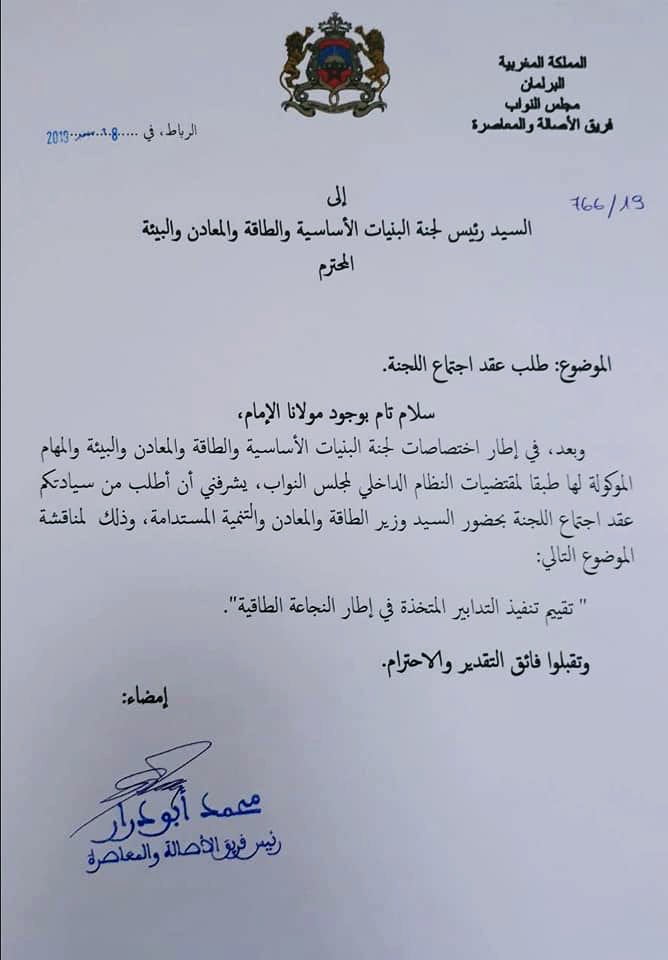 المملكة المغربية
البرلمان
مجلس النواب
فريق الأصالة والمعاصرة
الرباط، في ..................
766/19
إلى
السيد رئيس لجنة البنيات الأساسية والطاقة والمعادن والبيئة
المحترم
الموضوع: طلب عقد اجتماع اللجنة.
سلام تام بوجود مولانا الإمام،
وبعد، في إطار اختصاصات لجنة البنيات الأساسية والطاقة والمعادن والبيئة والمهام
الموكولة لها طبقا لمقتضيات النظام الداخلي لمجلس النواب، يشرفني أن أطلب من سيادتكم
عقد اجتماع اللجنة بحضور السيد وزير الطاقة والمعادن والتنمية المستدامة، وذلك لمناقشة
الموضوع التالي:
" تقييم تنفيذ التدابير المتخذة في إطار النجاعة الطاقية".
وتقبلوا فائق التقدير والاحترام.
إمضاء:
محمد أبودرار
رئيس فريق الأصالة والمعاصرة